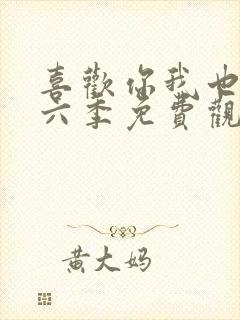 喜歡你我也
六季免費觀
黃大妈